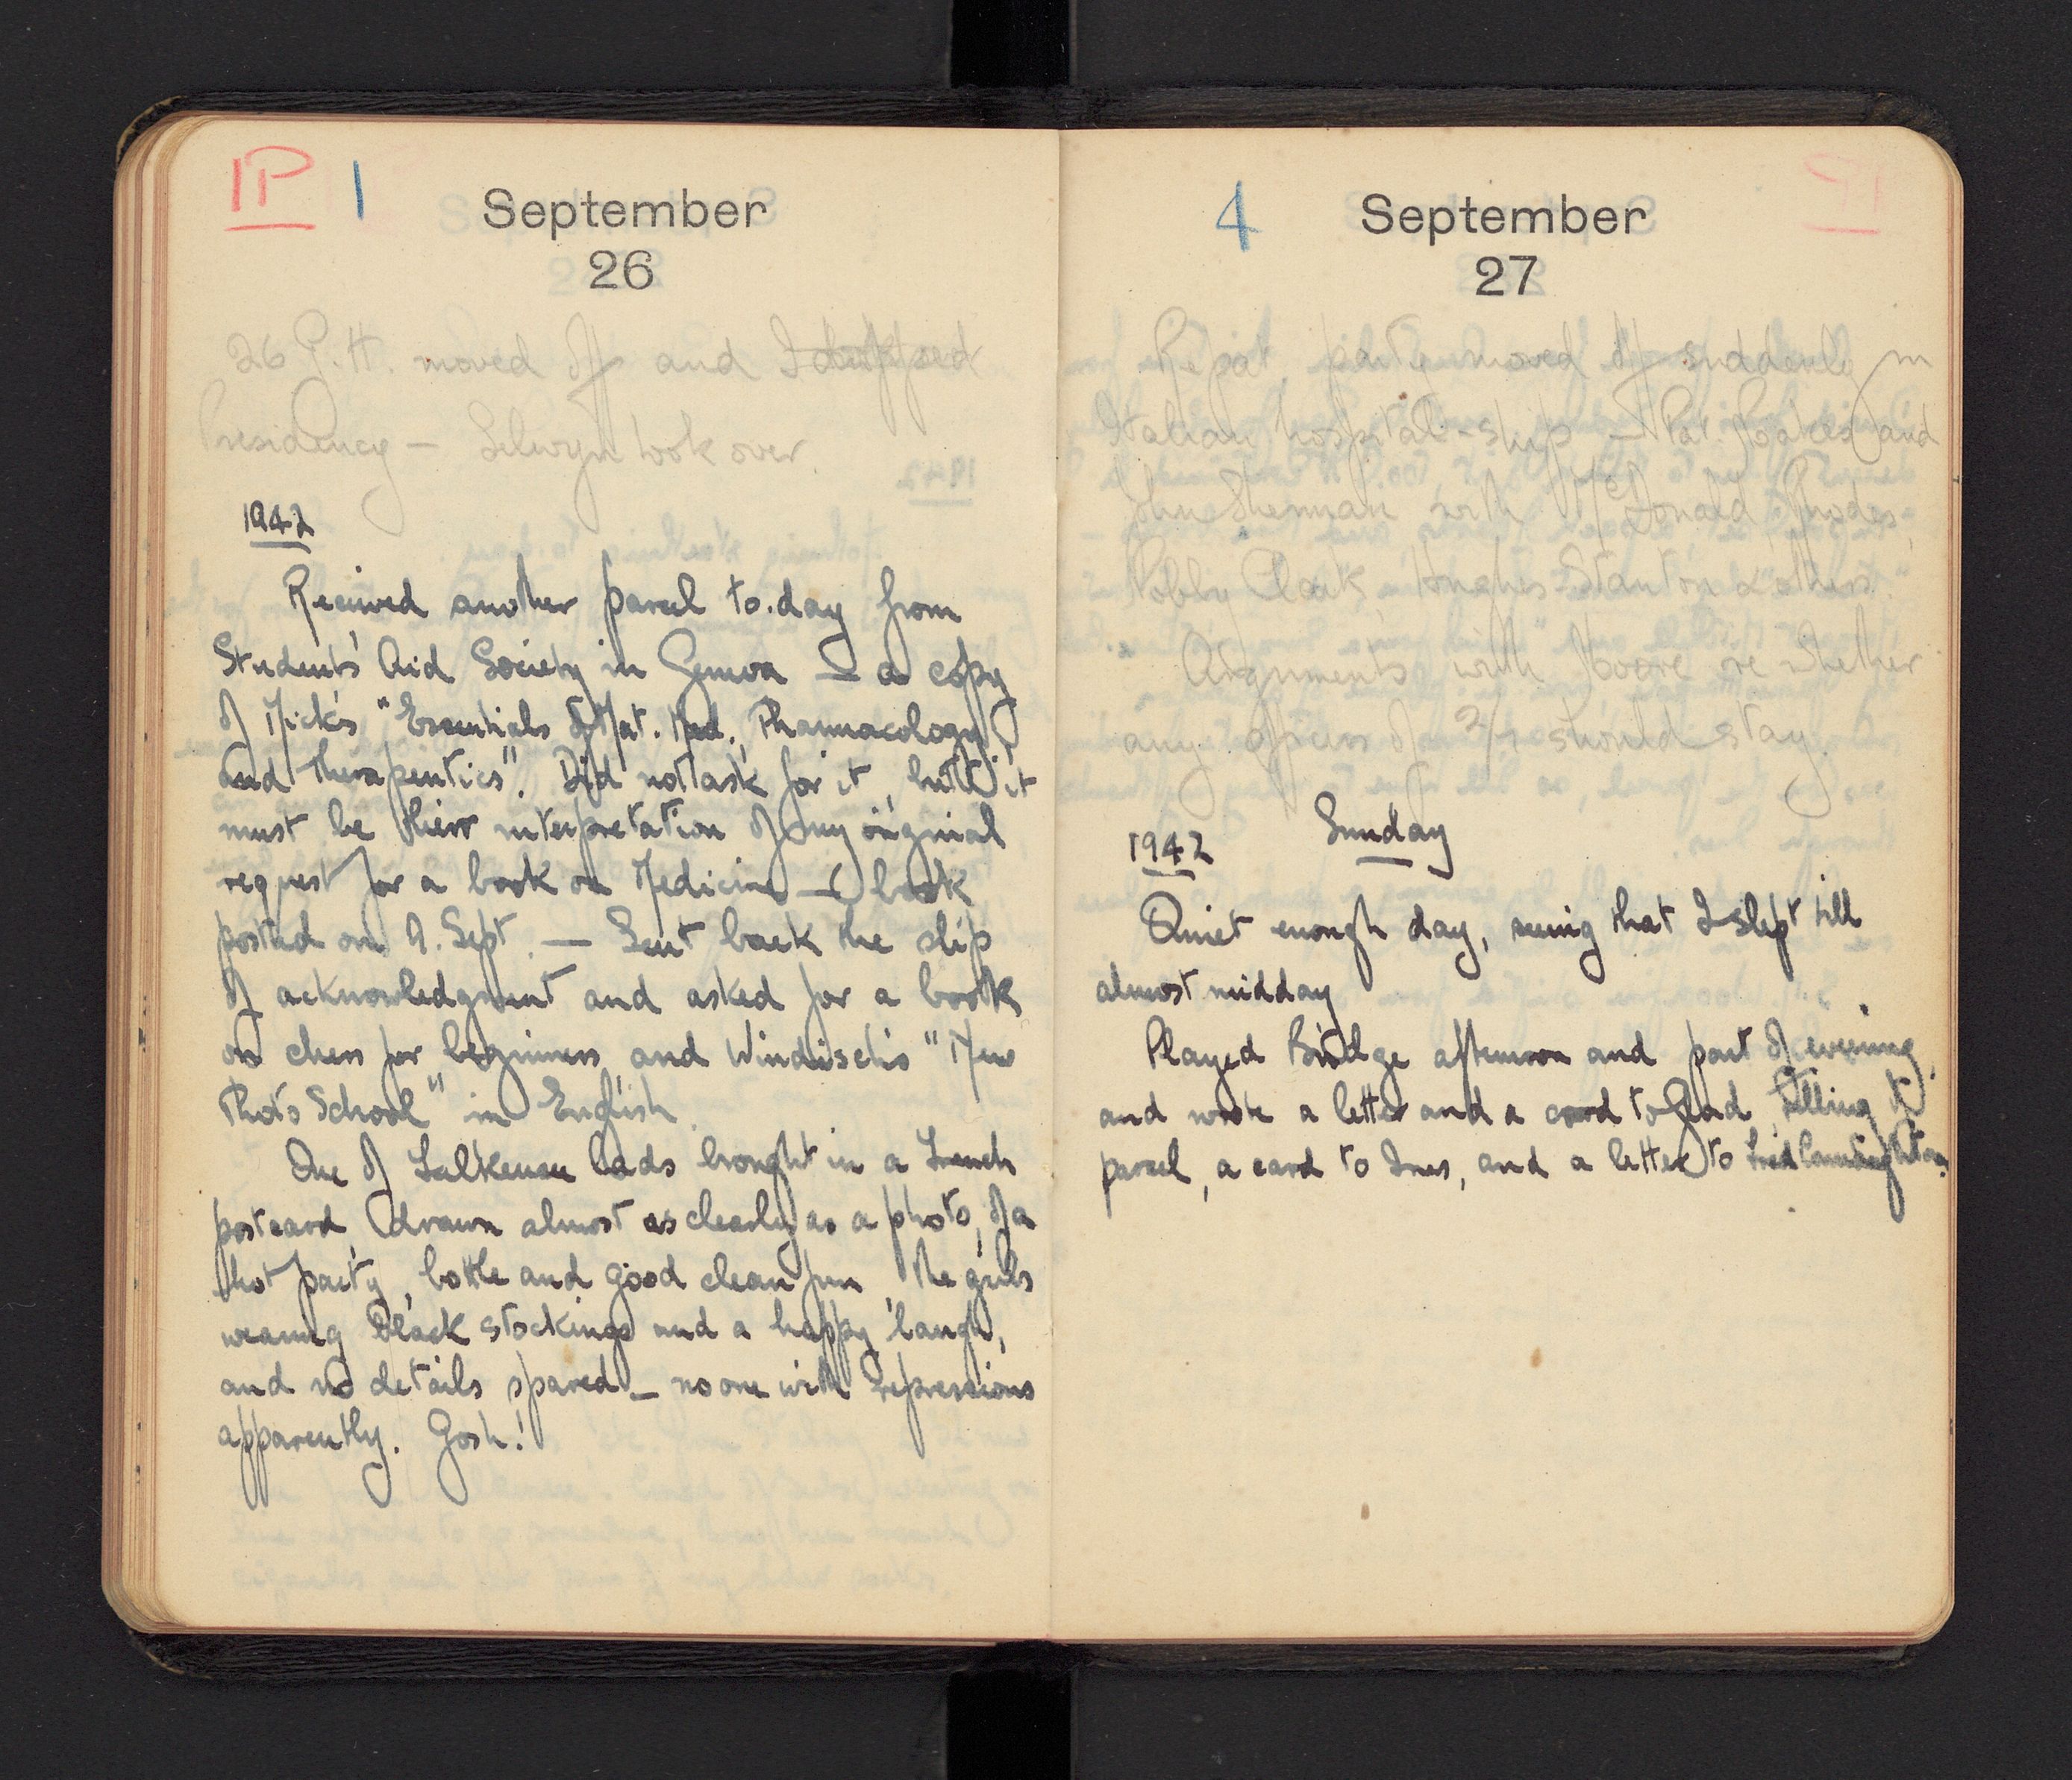 1P 1
September
26
26 G.H. moved off and I
Presidency — Selwyn took over.
1942
Received another parcel to-day from
Students' Aid Society in Geneva — a copy
of Mick's "Essentials of Mat. Med., Pharmacology
and Therapeutics". Did not ask for it, but it
must be their interpretation of my original
request for a book on Medicine — book
posted on 9. Sept. — Sent back the slip
of acknowledgment and asked for a book
on chess for beginners and Windisch's "New
Photo School" in English.
One of lads brought in a French
postcard drawn almost as clearly as a photo, of a
hot party, bottle and good clean fun, the girls
wearing black stockings and a happy laugh,
and no details spared — no one with repressions
apparently. Gosh!
4
September
27
Repat. party moved off suddenly in
Italian hospital-ship — Pat. and
John Sherman with McDonald, Rhodes,
Bobby Clark, Hughes-Stanton & others.
Arguments with Moore re whether
any officers of 2/1 should stay.
1942 Sunday
Quiet enough day, seeing that I slept till
almost midday
Played Bridge afternoon and part of evening
and wrote a letter and a card to telling of
parcel, a card to Ines, and a letter to